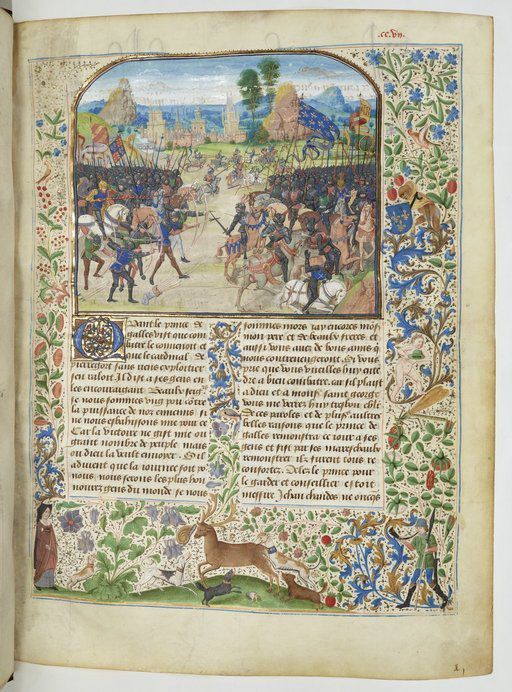 .cc.vii.
Quant le prince de
galles vist que com
batre le convenoit et
que le cardinal de
pierregort sans riens exploitier
sen aloit Il dist a ses gens en
les encourageant Beaulx seign̄rs
se nous sommes ung peu contre
la puissance de nos ennemis si
ne nous esbahissons mie pour ce
Car la victoire ne gist mie ou
grant nombre de peuple mais
ou dieu la veult envoyer. Sil
advient que la iournee soit pour
nous. nous serons les plus hon
nourez gens du monde se nous
sommes mors iay encores mons̄r
mon pere et de beaulx freres et
aussi vous avez de bons amis qui
nous contrevengeront. Si vous
prie que vous vueilles huy enten
dre a bien combatre, car sil plaist
a dieu et a mons̄r saint george
vous me verrez huy bon ch̄lr
De ces paroles et de plus̄rs aultres
belles raisons que le prince de
galles remonstra ce iour a ses
gens et fist par ses mareschaulx
remonstrer ilz furent tous re
confortez. Delez le prince pour
le garder et conseillier estoit
messire Iehan chandos ne oncqs